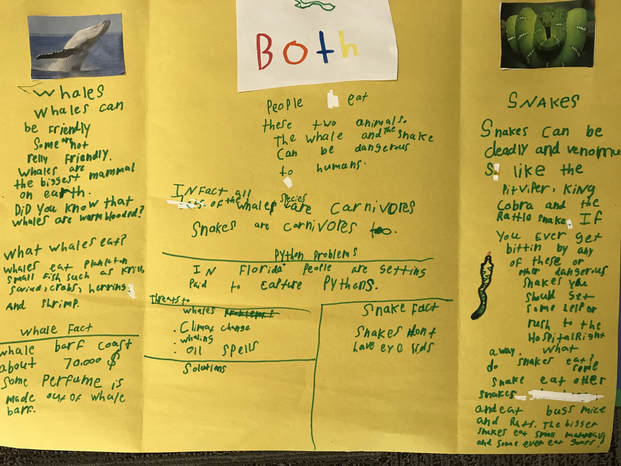 Both
Whales
Whales can
be friendly
Some are not
relly friendly.
Whales are
the biggest mammal
on earth.
DiD you know that
whales are warm blooded?
What whales eat?
whales eat plankton
small fish such as krill,
crabs, herring,
and shrimp.
Whale Fact
whale barf coast
about 70.000 $
some perfume is
made out of whale
barf.
People eat
these two animals.
The whale and the snake
can be dangerous
to humans.
INfact all
of the whales species are carnivores
Snakes are carnivores too.
Python Problems
IN Florida People are getting
Paid to capture Pythons.
Threats to
whales
. Climax change
. whaling
. oil spells
Solutions
Snake Fact
Snakes dont
have eye lids
SNAKES
Snakes can be
deadly and venomu
s like the
Pitviper, King
Cobra and the
Rattle snake. If
You ever get
bittin by any
of these or
other dangerius
snakes you
should get
some help or
rush to the
Hospital right
away. What
do snakes eat?
some
snake eat other
snakes
and eat bugs mice
and Rats. The bigger
snakes eat small mammals
and some even eat